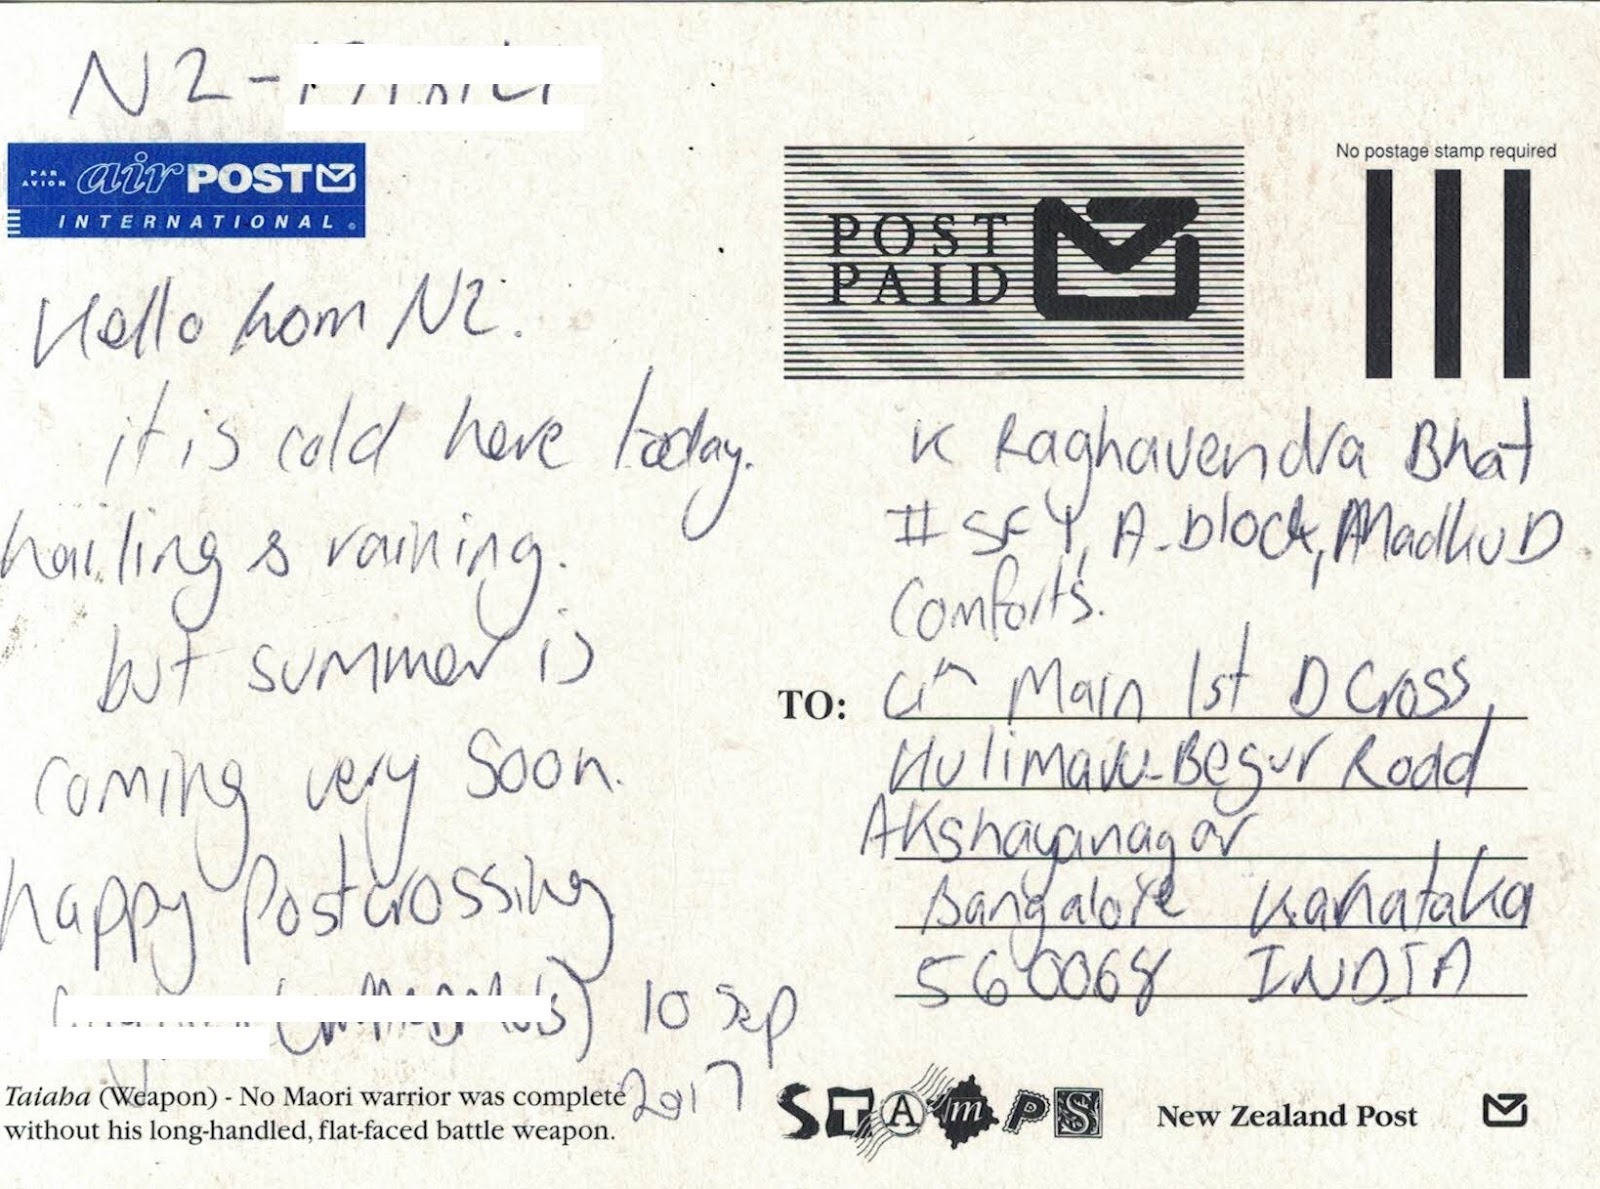 NZ-
PAR AVION air POST
INTERNATIONAL
Hello from NZ.
it is cold here today.
hailing & raining.
but summer is
coming very soon.
happy Postcrossing
10 Sep
2017
Taiaha (Weapon) - No Maori warrior was complete
without his long-handled, flat-faced battle weapon.
POST
PAID
No postage stamp required
K Raghavendra Bhat
A-block, Madhu D
Comforts.
TO:
Main 1st D Cross,
Hulimavu-Begur Road
Akshayanagar
Bangalore Karnataka
560068 INDIA
STAmPS
New Zealand Post